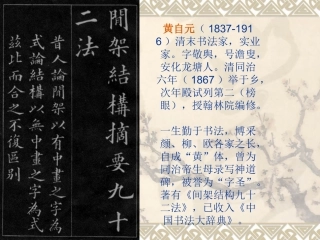 間架結構摘要九十
二法
昔人論間架以有中畫之字為
式論結構以無中畫之字為式
茲比而合之不復區別
黄自元（1837-191
6）清末书法家，实业
家。字敬舆，号澹叟，
安化龙塘人。清同治
六年（1867）举于乡，
次年殿试列第二（榜
眼），授翰林院编修。
一生勤于书法，博采
颜、柳、欧各家之长，
自成“黄”体，曾为
同治帝生母录写神道
碑，被誉为“字圣”。
著有《间架结构九十
二法》，已收入《中
国书法大辞典》。